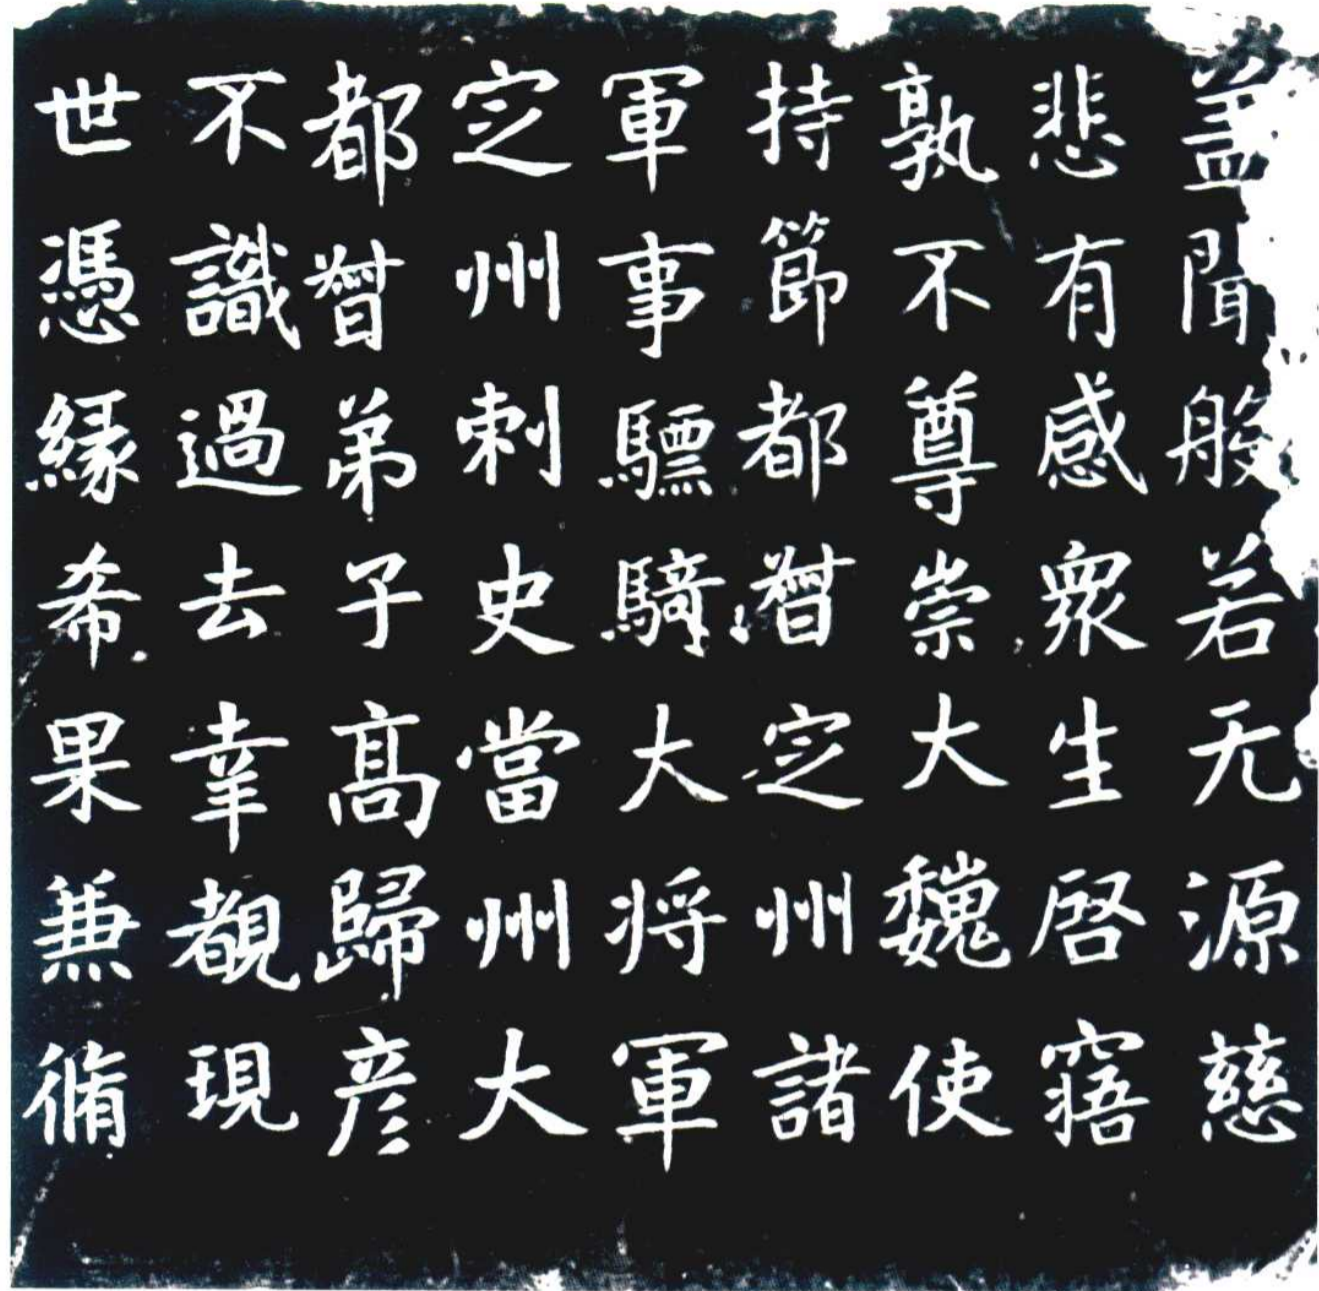 盖聞般若无源慈
悲有感衆生啓寤
孰不尊崇大魏使
持節都督定州諸
軍事驃騎大将軍
定州刺史當州大
都督弟子高歸彦
不識過去幸覩現
世憑縁希果兼脩